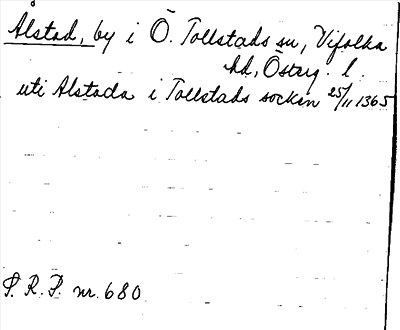 Ålstad, by i Ö. Tollstads sn, Vifolka
hd, Österg. l.
uti Alstada i Tollstads sockin 25/11 1365
S. R. P. nr. 680